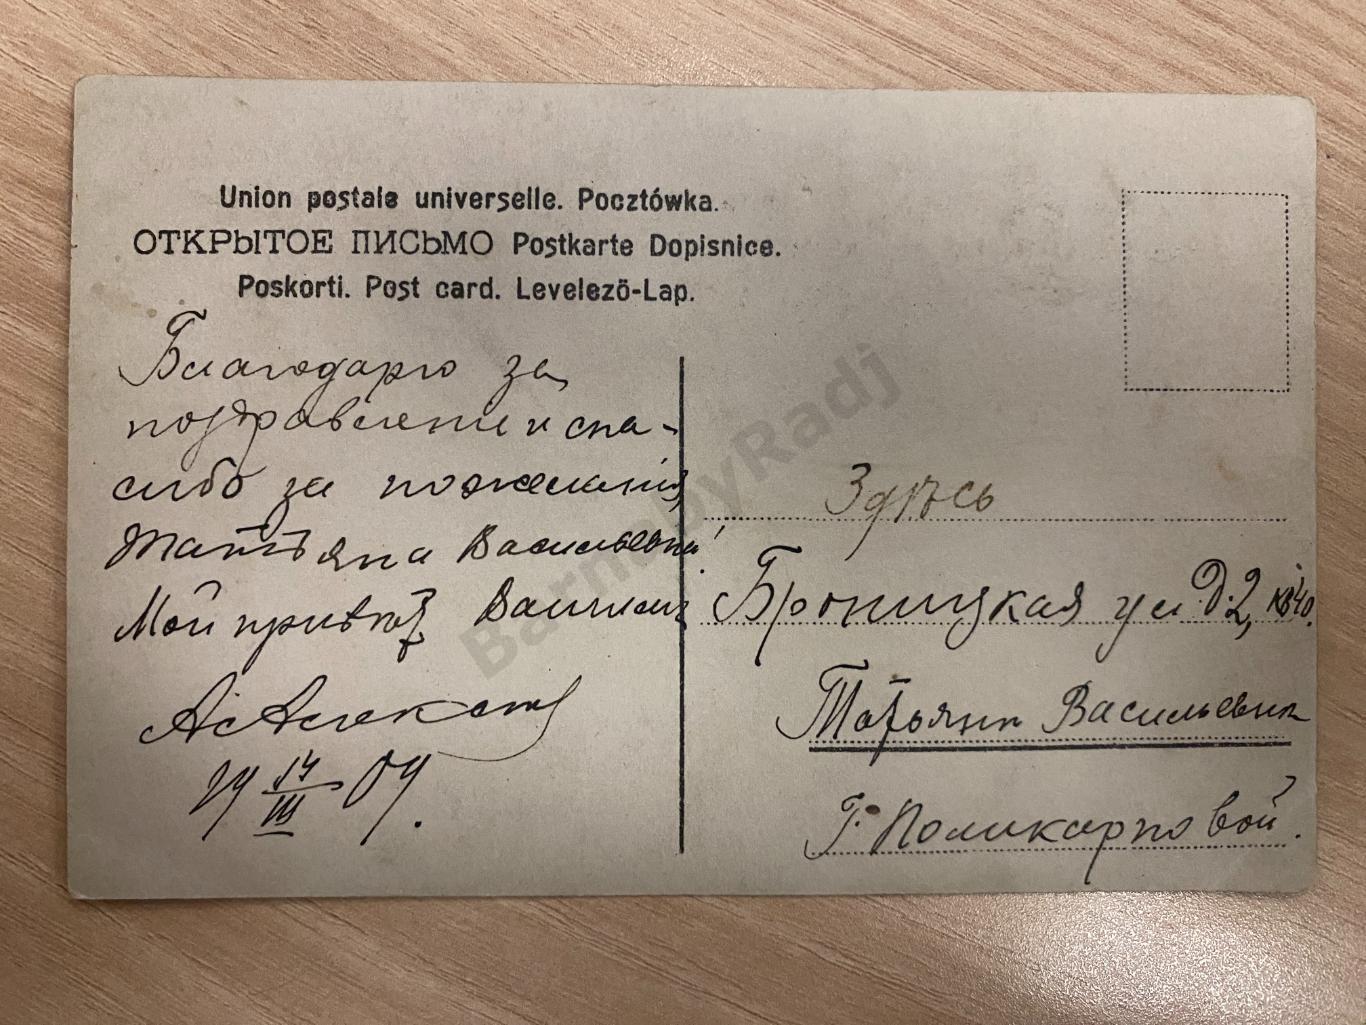 Union postale universelle. Pocztówka.
ОТКРЫТОЕ ПИСЬМО Postkarte Dopisnice.
Poskorti. Post card. Levelezö-Lap.
Благодарю за
поздравление и спа-
сибо за пожелания
Татьяна Васильевна!
Мой привет
19 14/III 09.
Здѣсь
Броницкая ул Д. 2, кв 40.
Татьянѣ Васильевнѣ
Г. Поликарповой.
BarnabyRadj